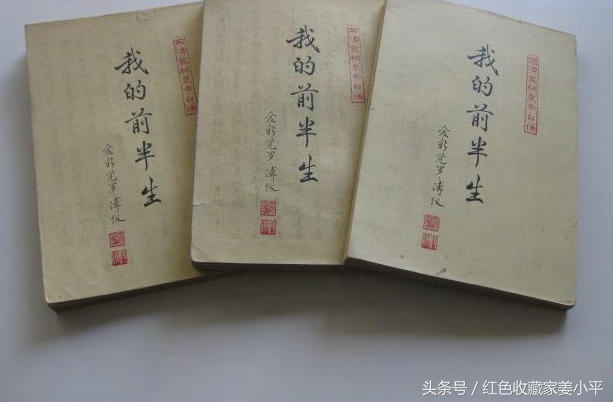 前清宣統皇帝自傳
我的前半生
爱新觉罗·溥仪
前清宣統皇帝自傳
我的前半生
爱新觉罗·溥仪
前清宣統皇帝自傳
我的前半生
爱新觉罗·溥仪
头条号/红色收藏家姜小平